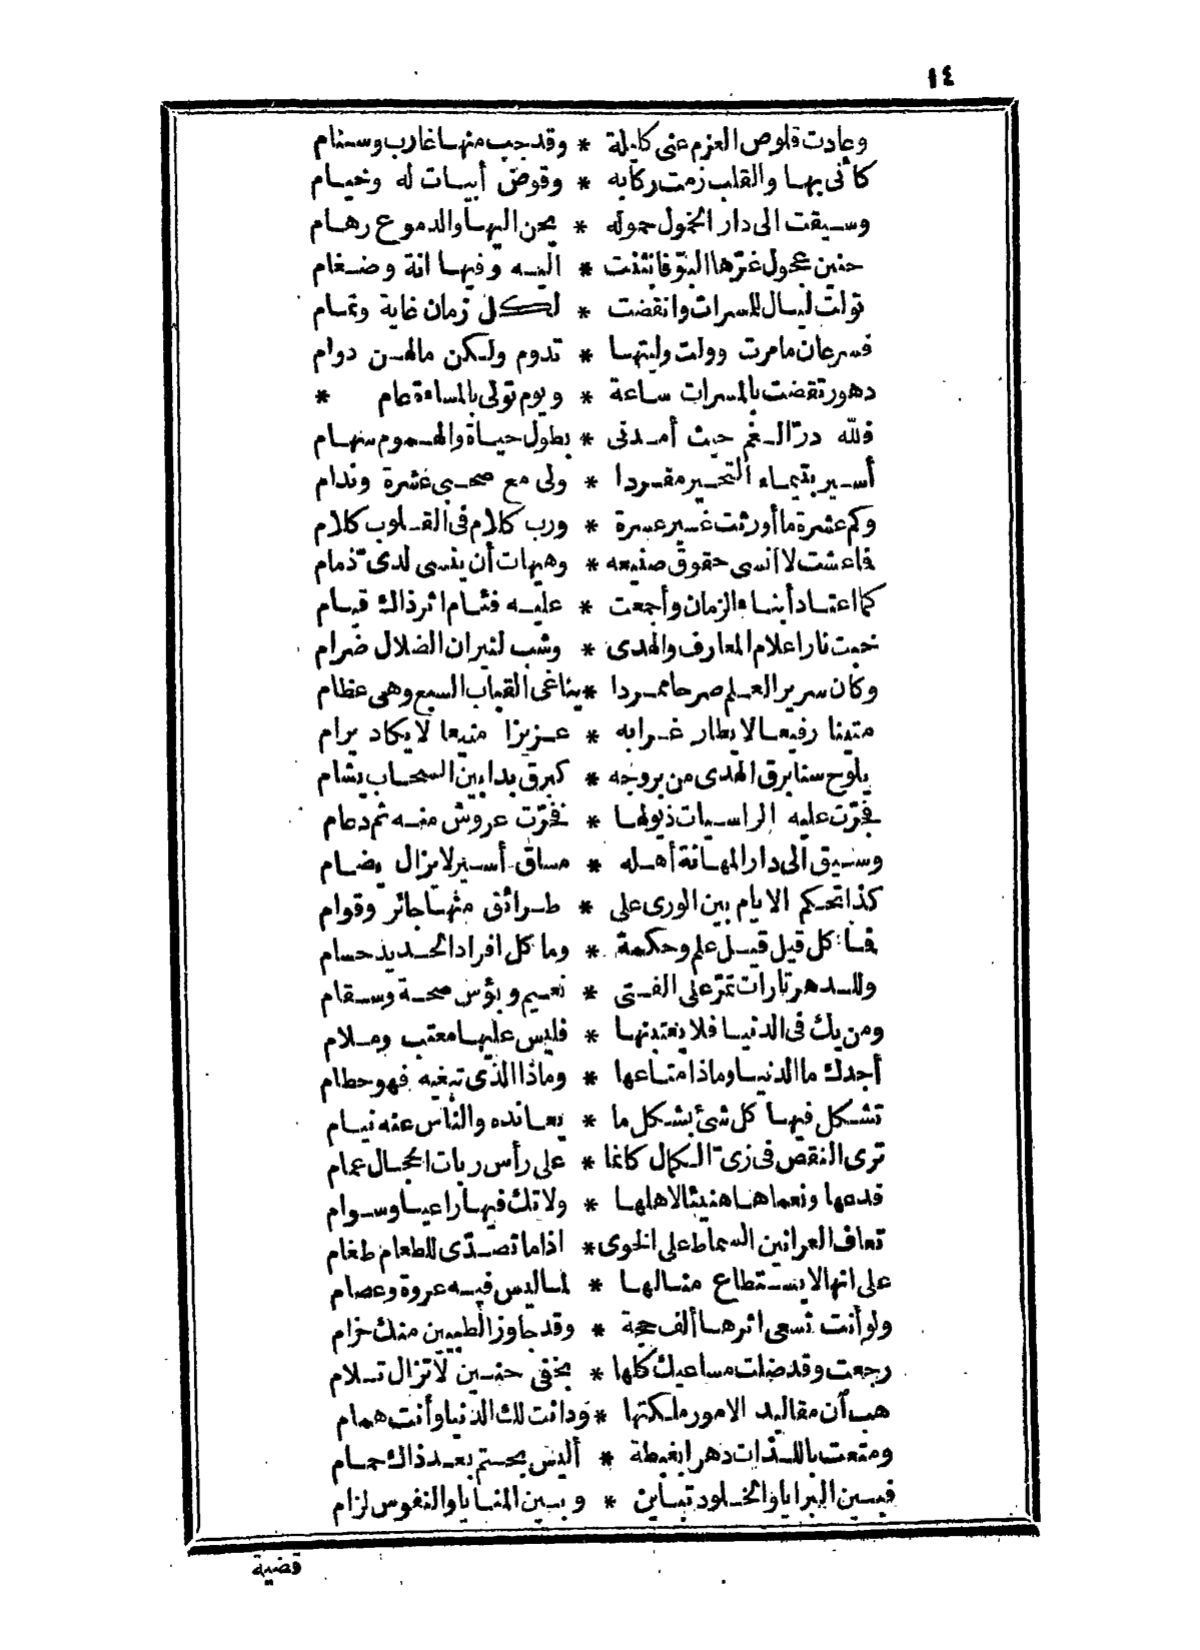 ١٤
وعادت قلوص العزم عنى كليلة * وقد جب منها غارب وسنام
كأنى بها والقلب زمت ركابه * وقوض أبيات له وخيام
وسيقت الى دار الخمول حموله * يحن اليها والدموع رهام
حنين عجول غرها البو فانثنت * اليه وفيها انة وضغام
تولت ليال للمسرات وانقضت * لكل زمان غاية وتمام
فسرعان ما مرت وولت وليتها * تدوم ولكن مالهن دوام
دهور تقضت بالمسرات ساعة * ويوم تولى بالمساءة عام *
فلله در الغم حيث أمدنى * بطول حياة والهموم سهام
أسير بتيماء التحير مفردا * ولى مع صحبى عشرة وندام
وكم عشرة ما أورثت غير عسرة * ورب كلام فى القلوب كلام
فاعشت لا أنسى حقوق صنيعه * وهيهات أن ينسى لدى ذمام
كما اعتاد أبناء الزمان وأجمعت * عليه فئام اثر ذاك قيام
خبت نار اعلام المعارف والهدى * وشب لنيران الضلال ضرام
وكان سرير العلم صرحا ممردا * يناغى القباب السبع وهى عظام
متينا رفيعا لا يطار غرابه * عزيزا منيعا لا يكاد يرام
يلوح سنا برق الهدى من بروجه * كبرق بدا بين السحاب يشام
فجرت عليه الراسيات ذيولها * فخرت عروش منه ثم دعام
وسيق الى دار المهانة أهله * مساق أسير لا يزال يضام
كذا تحكم الايام بين الورى على * طرائق منها جائر وقوام
فما كل قيل قيل علم وحكمة * وما كل افراد الحديد حسام
وللدهر تارات تمر على الفتى * نعيم وبؤس صحة وسقام
ومن يك فى الدنيا فلا يعتبنها * فليس عليها معتب وملام
أجدك ما الدنيا وماذا متاعها * وماذا الذى تبغيه فهو حطام
تشكل فيها كل شئ بشكل ما * يعانده والناس عنه نيام
ترى النقص فى زى الكمال كانما * على رأس ربات الحجال عمام
فدعها ونعماها هنيئا لاهلها * ولاتك فيها راعيا وسوام
تعاف العرانين السماط على الخوى * اذا ما تصدى للطعام طغام
على انها لا يستطاع منالها * لما ليس فيه عروة وعصام
ولو أنت تسعى اثرها ألف حجة * وقد جاوز الطبيين منك حزام
رجعت وقد ضلت مساعيك كلها * بخفى حنين لا تزال تلام
هب أن مقاليد الامور ملكتها * ودانت لك الدنيا وأنت همام
ومتعت باللذات دهرا بغبطة * أليس بحتم بعد ذاك حمام
فبين البرايا والخلود تباين * وبين المنايا والنفوس لزام
قضية